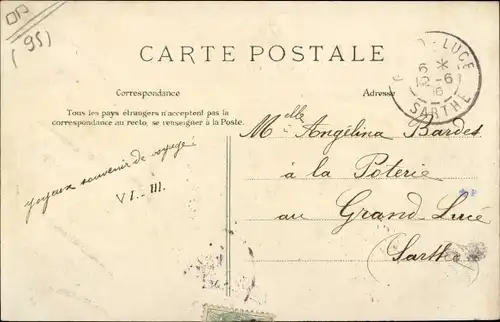 (95)
CARTE POSTALE
Correspondance
Adresse
Tous les pays étrangers n'acceptent pas la
correspondance au recto, se renseigner à la Poste.
LUCE
6 *
12-6
SARTHE
Melle Angélina Bardet
à la Poterie
au Grand-Lucé
(Sarthe)
joyeux souvenir de voyage!
VI-III.